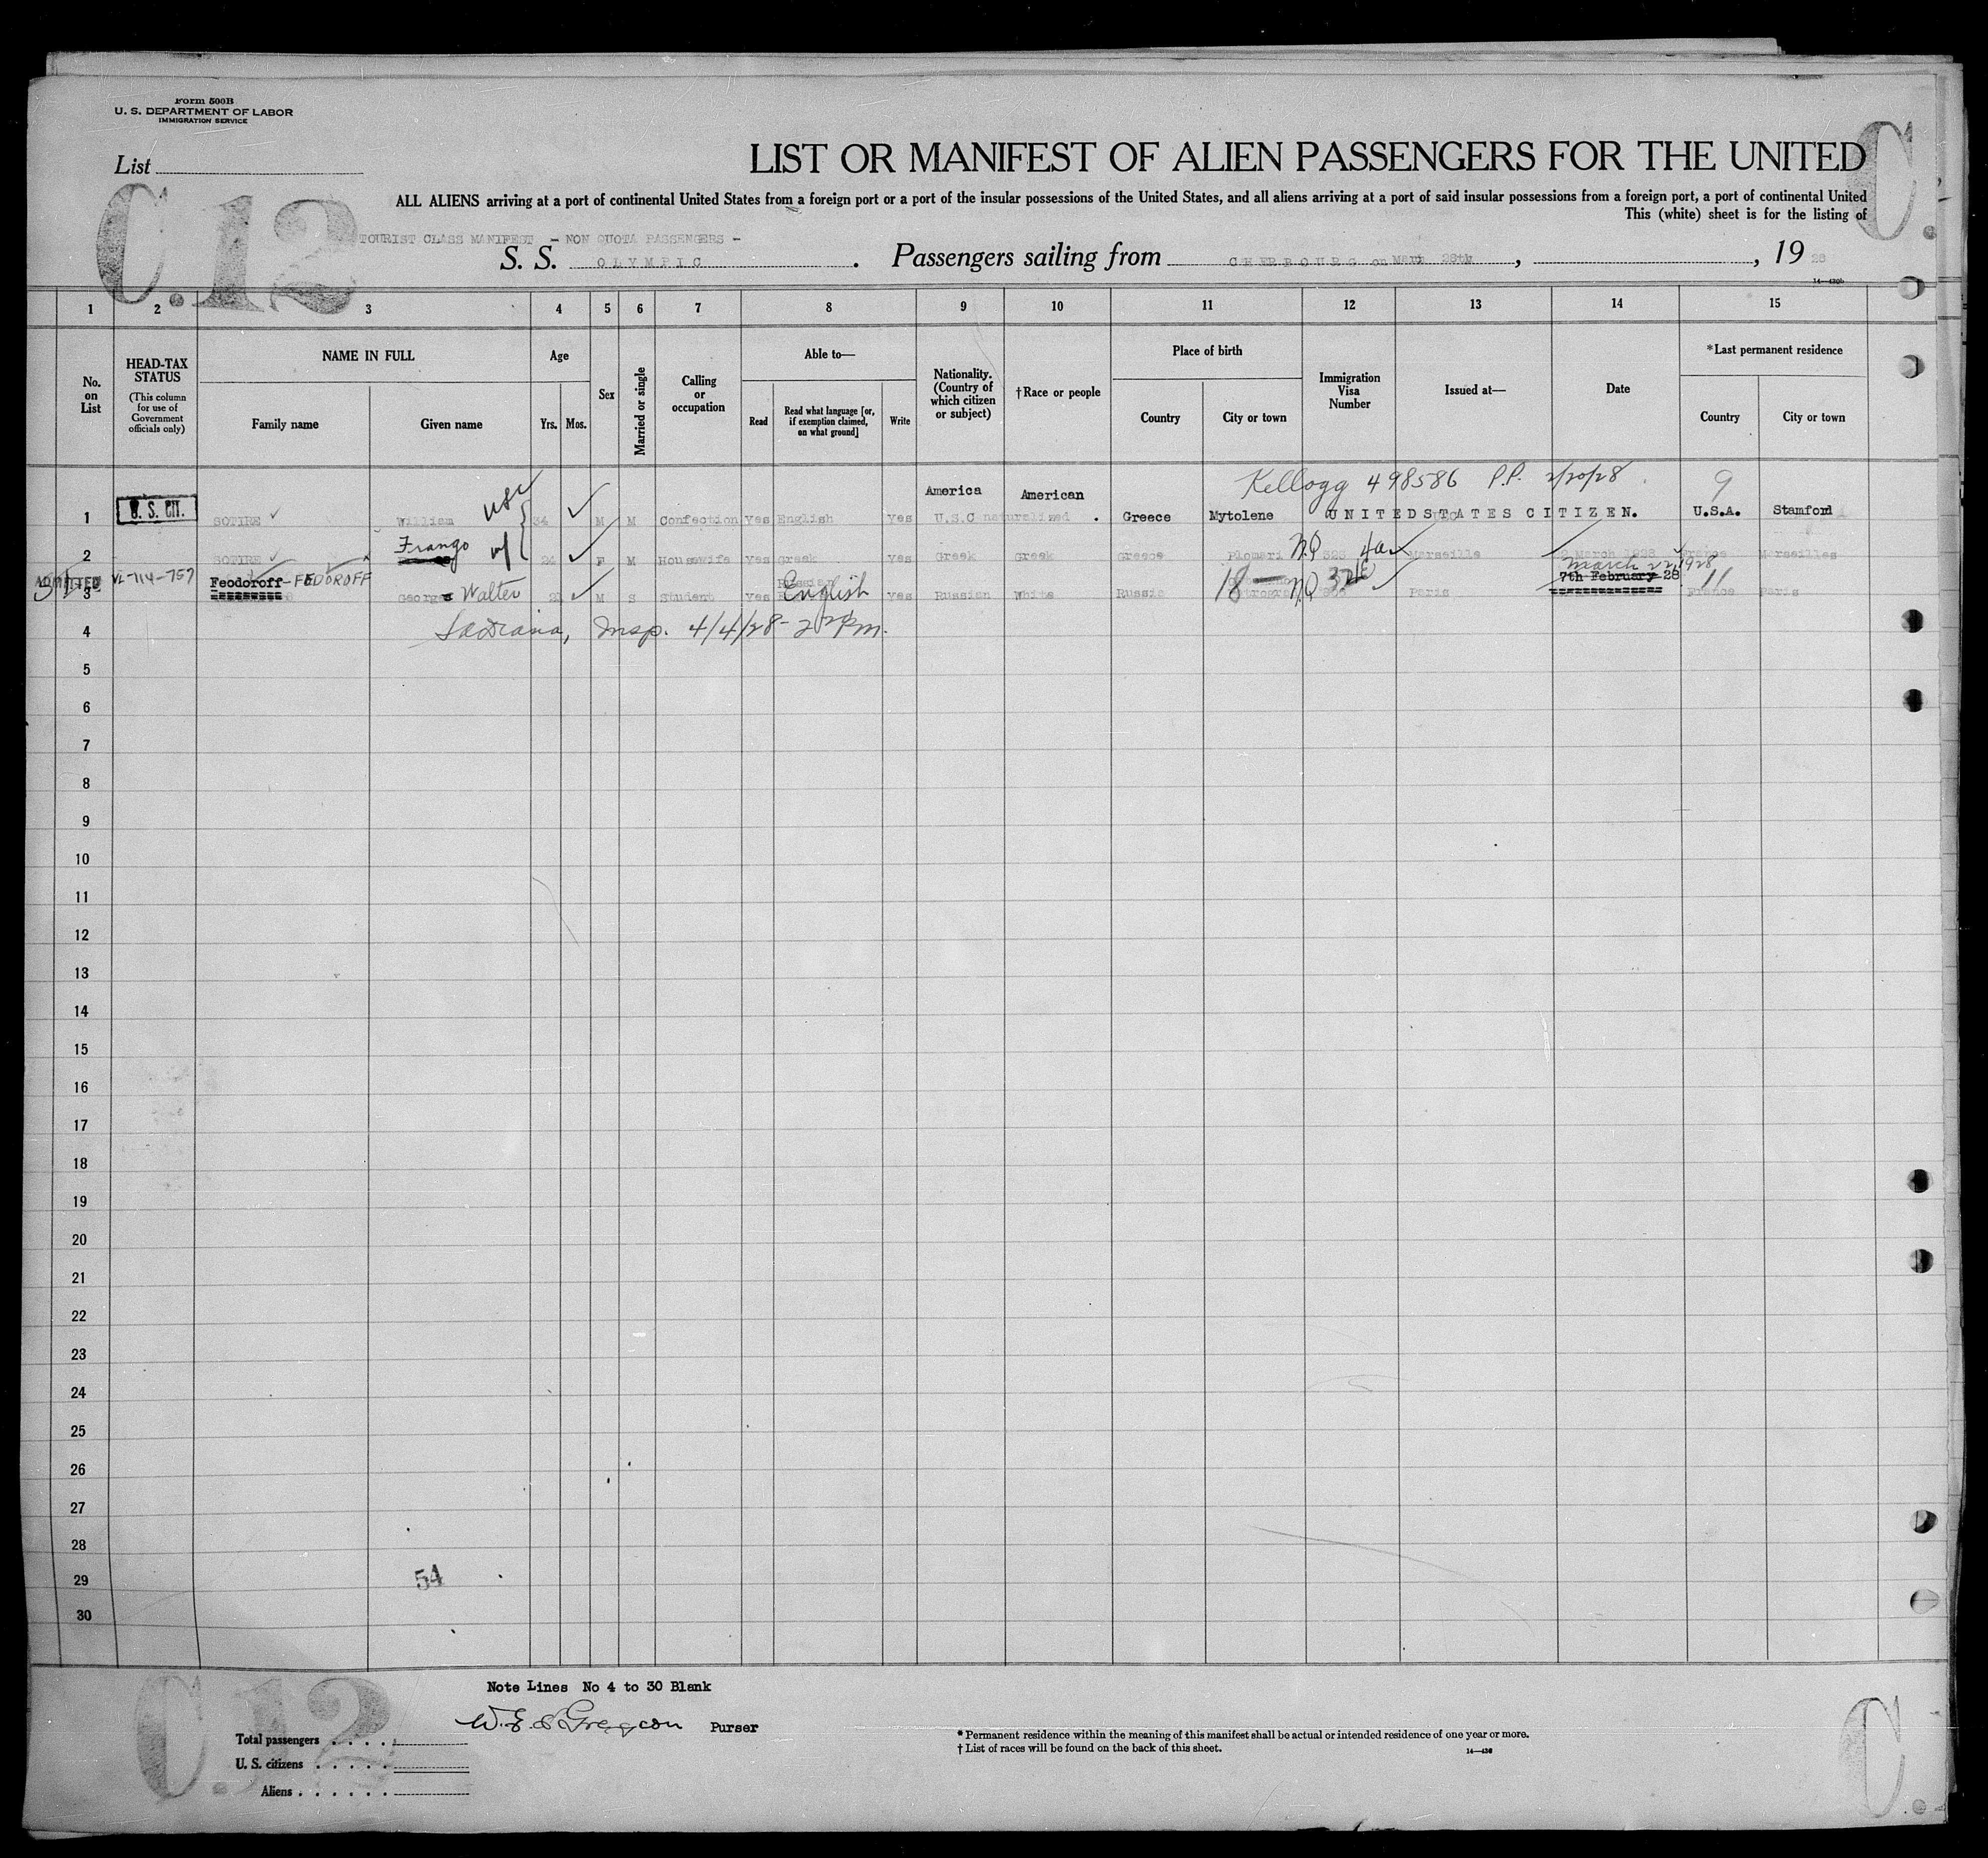 Form 500B
U. S. DEPARTMENT OF LABOR
IMMIGRATION SERVICE
List
LIST OR MANIFEST OF ALIEN PASSENGERS FOR THE UNITED
ALL ALIENS arriving at a port of continental United States from a foreign port or a port of the insular possessions of the United States, and all aliens arriving at a port of said insular possessions from a foreign port, a port of continental United
This (white) sheet is for the listing of
C.12
C.
TOURIST CLASS MANIFEST - NON QUOTA PASSENGERS -
S. S. OLYMPIC. Passengers sailing from CHERBOURG on March 28th, , 19 28
14-430b
1 2 3 4 5 6 7 8 9 10 11 12 13 14 15
No. on List
HEAD-TAX STATUS (This column for use of Government officials only)
NAME IN FULL
Family name Given name
Age
Yrs. Mos.
Sex
Married or single
Calling or occupation
Able to—
Read Read what language [or, if exemption claimed, on what ground] Write
Nationality. (Country of which citizen or subject)
†Race or people
Place of birth
Country City or town
Immigration Visa Number
Issued at—
Date
*Last permanent residence
Country City or town
Kellogg 498586 P.P. 2/20/28 9
America American
1 U. S. CIT. SOTIRE William USC 34 M M Confection yes English yes U.S.C naturalized. Greece Mytolene UNITED STATES CITIZEN. U.S.A. Stamford
2 SOTIRE Frango wf 24 F M Housewife yes Greek yes Greek Greek Greece Plomari N.Q 328 4a Marseille March 1928 France Marseilles
ADMITTED VL-714-757 Feodoroff-FEDOROFF
3 George Walter M S Student yes Russian English yes Russian White Russia 18 N.Q Paris 7th February 28 March 22, 1928 11 France Paris
4 Insp. 4/4/28 - 2 Pm.
5
6
7
8
9
10
11
12
13
14
15
16
17
18
19
20
21
22
23
24
25
26
27
28
29 54
30
Note Lines No 4 to 30 Blank
Purser
C.12
C.
Total passengers . . . .
U. S. citizens . . . . .
Aliens . . . . . .
* Permanent residence within the meaning of this manifest shall be actual or intended residence of one year or more.
† List of races will be found on the back of this sheet.
14-430